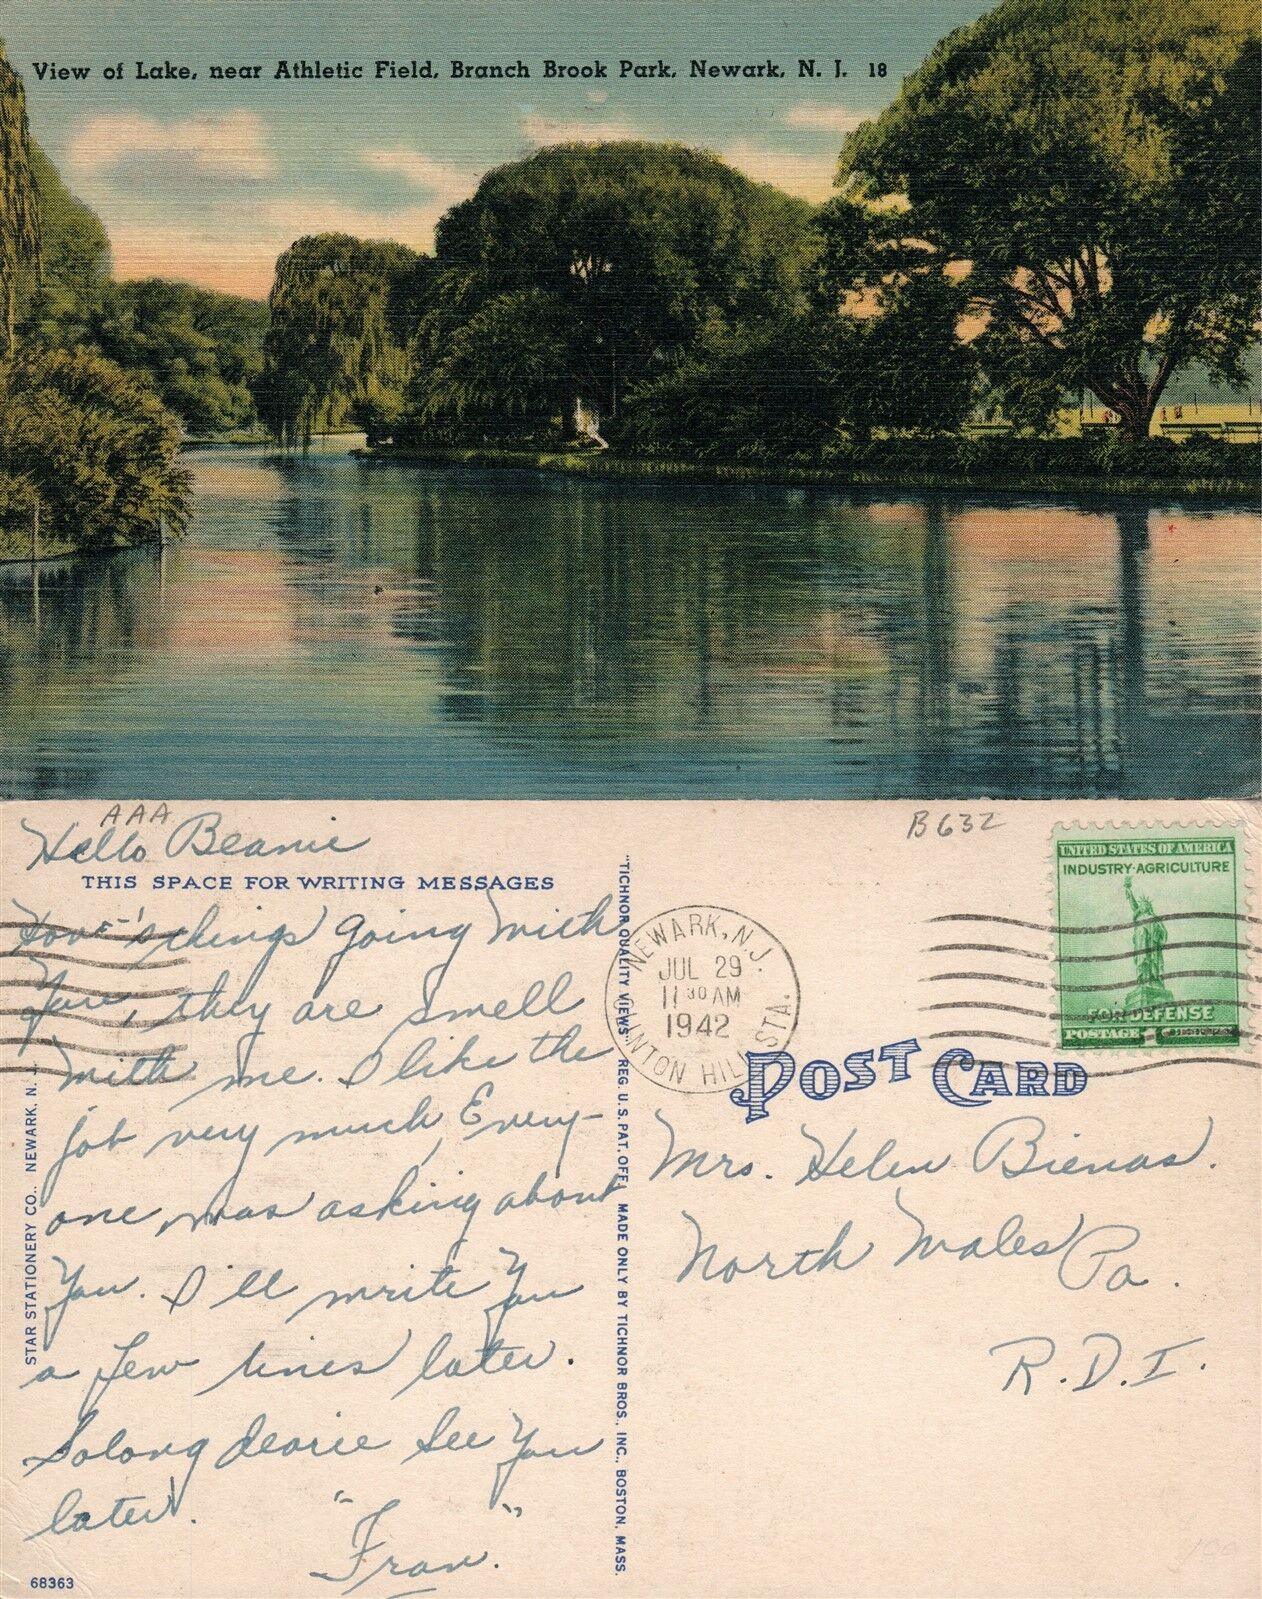 View of Lake, near Athletic Field, Branch Brook Park, Newark, N. J. 18
AAA
Hello Beanie
THIS SPACE FOR WRITING MESSAGES
How's things going with
You, they are smell
with me. I like the
job very much, Every-
one was asking about
You. I'll write You
a few lines later.
Solong dearie See You
later.
"Fran."
68363
STAR STATIONERY CO., NEWARK, N. J.
"TICHNOR QUALITY VIEWS," REG. U.S. PAT. OFF. MADE ONLY BY TICHNOR BROS., INC., BOSTON, MASS.
B632
NEWARK, N.J.
JUL 29
11 30 AM
1942
CLINTON HILL STA.
UNITED STATES OF AMERICA
INDUSTRY·AGRICULTURE
FOR DEFENSE
POSTAGE 1
POST CARD
Mrs. Helen Bienas.
North Wales Pa.
R.D.I.
100